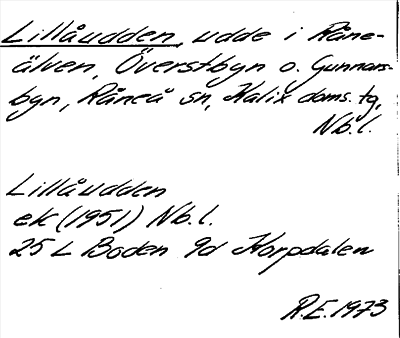 Lillåudden, udde i Råne-
älven, Överstbyn o. Gunnars-
byn, Råneå sn, Kalix doms. tg,
Nb.l.
Lillåudden
ek (1951) Nb.l.
25 L Boden 9d Korpdalen
R.E. 1973